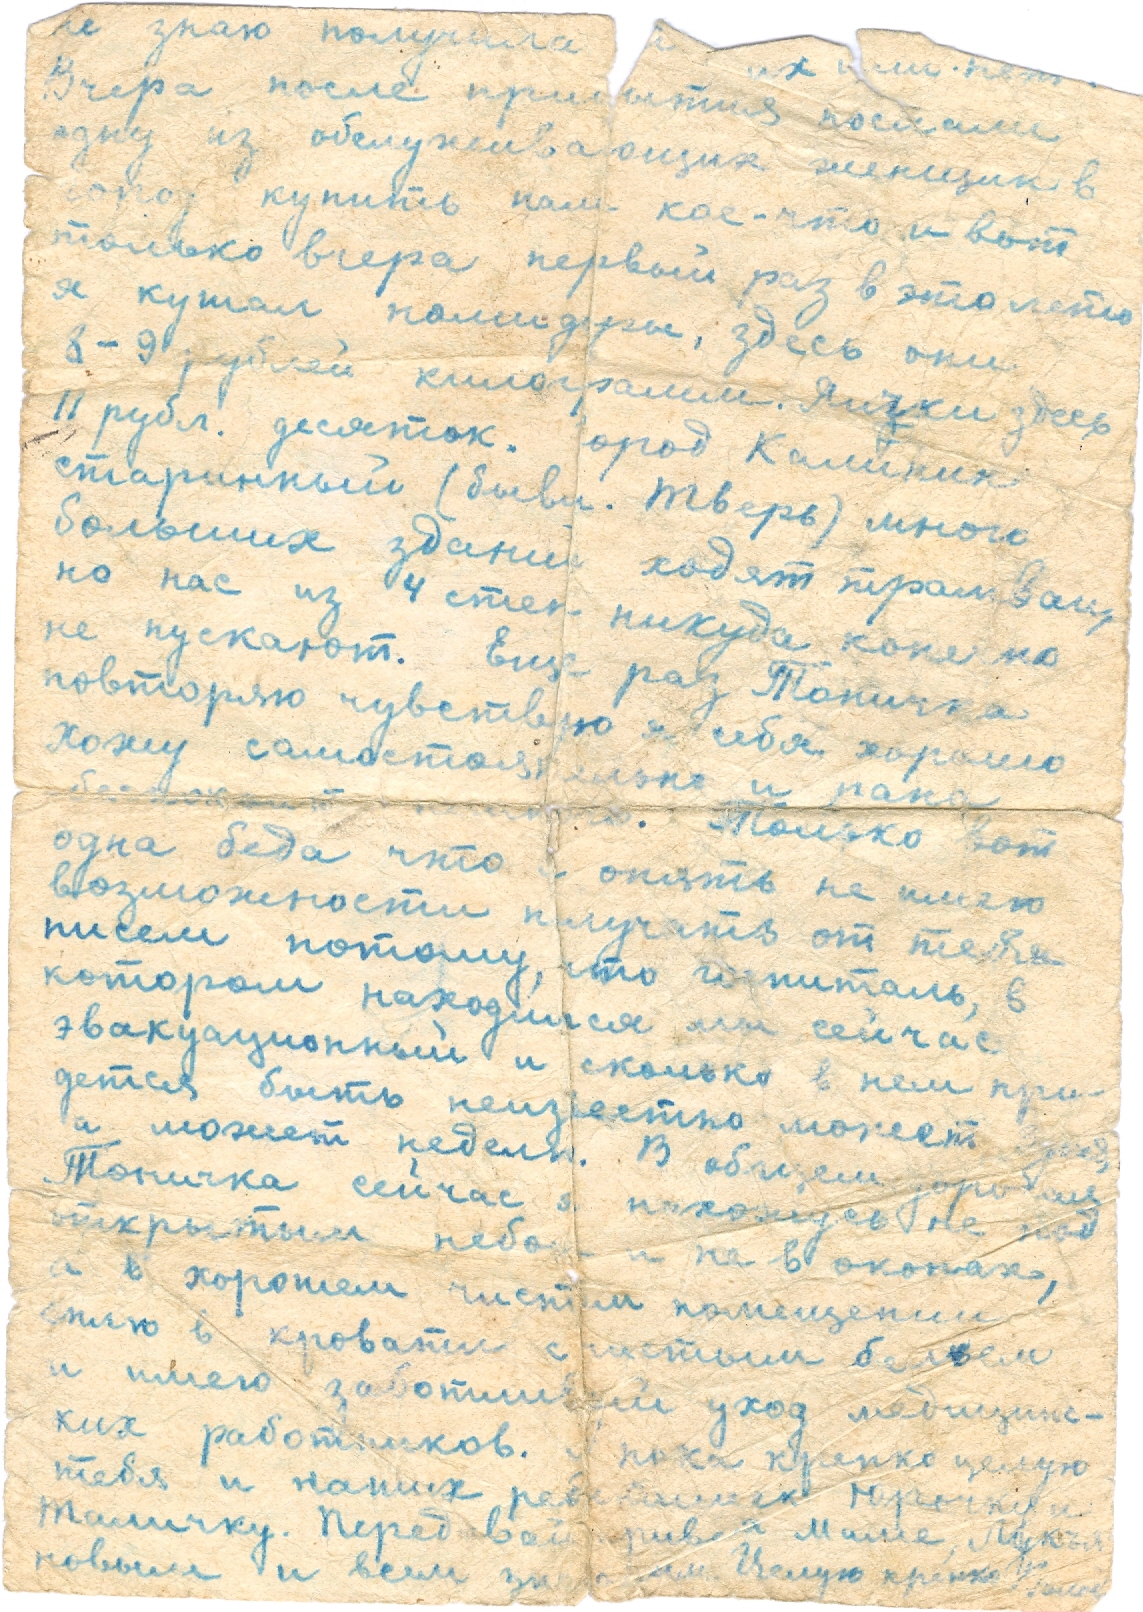 не знаю получила их или нет.
Вчера после прибытия послали
одну из обслуживающих женщин в
город купить нам кое-что и вот
только вчера первый раз в это лето
я кушал помидоры, здесь они
8-9 рублей килограмм. Яички здесь
11 рубл. десяток. Город Калинин
старинный (бывш. Тверь) много
больших зданий ходят трамваи,
но нас из 4 стен никуда конечно
не пускают. Еще раз Тоничка
повторяю чувствую я себя хорошо
хожу самостоятельно и рана
Только вот
одна беда что я опять не имею
возможности получать от тебя
писем потому, что госпиталь, в
котором находимся мы сейчас
эвакуационный и сколько в нем при-
детса быть неизвестно может
а может неделю. В общем дорогая
Тоничка сейчас я нахожусь не под
открытым небом и не в окопах,
а в хорошем чистом помещении
сплю в кровати с чистым бельем
и имею заботливый уход медицинс-
ких работников. пока крепко целую
тебя и наших ребятишек Юрочку и
Таличку. Передавай привет Маме, Лукья
новым и всем знакомым. Целую крепко